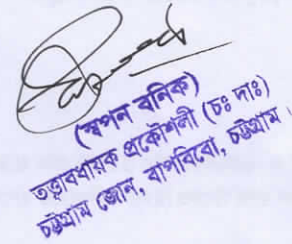 (স্বপন বনিক)
তত্ত্বাবধায়ক প্রকৌশলী (চঃ দাঃ)
চট্টগ্রাম জোন, বাপবিবো, চট্টগ্রাম।